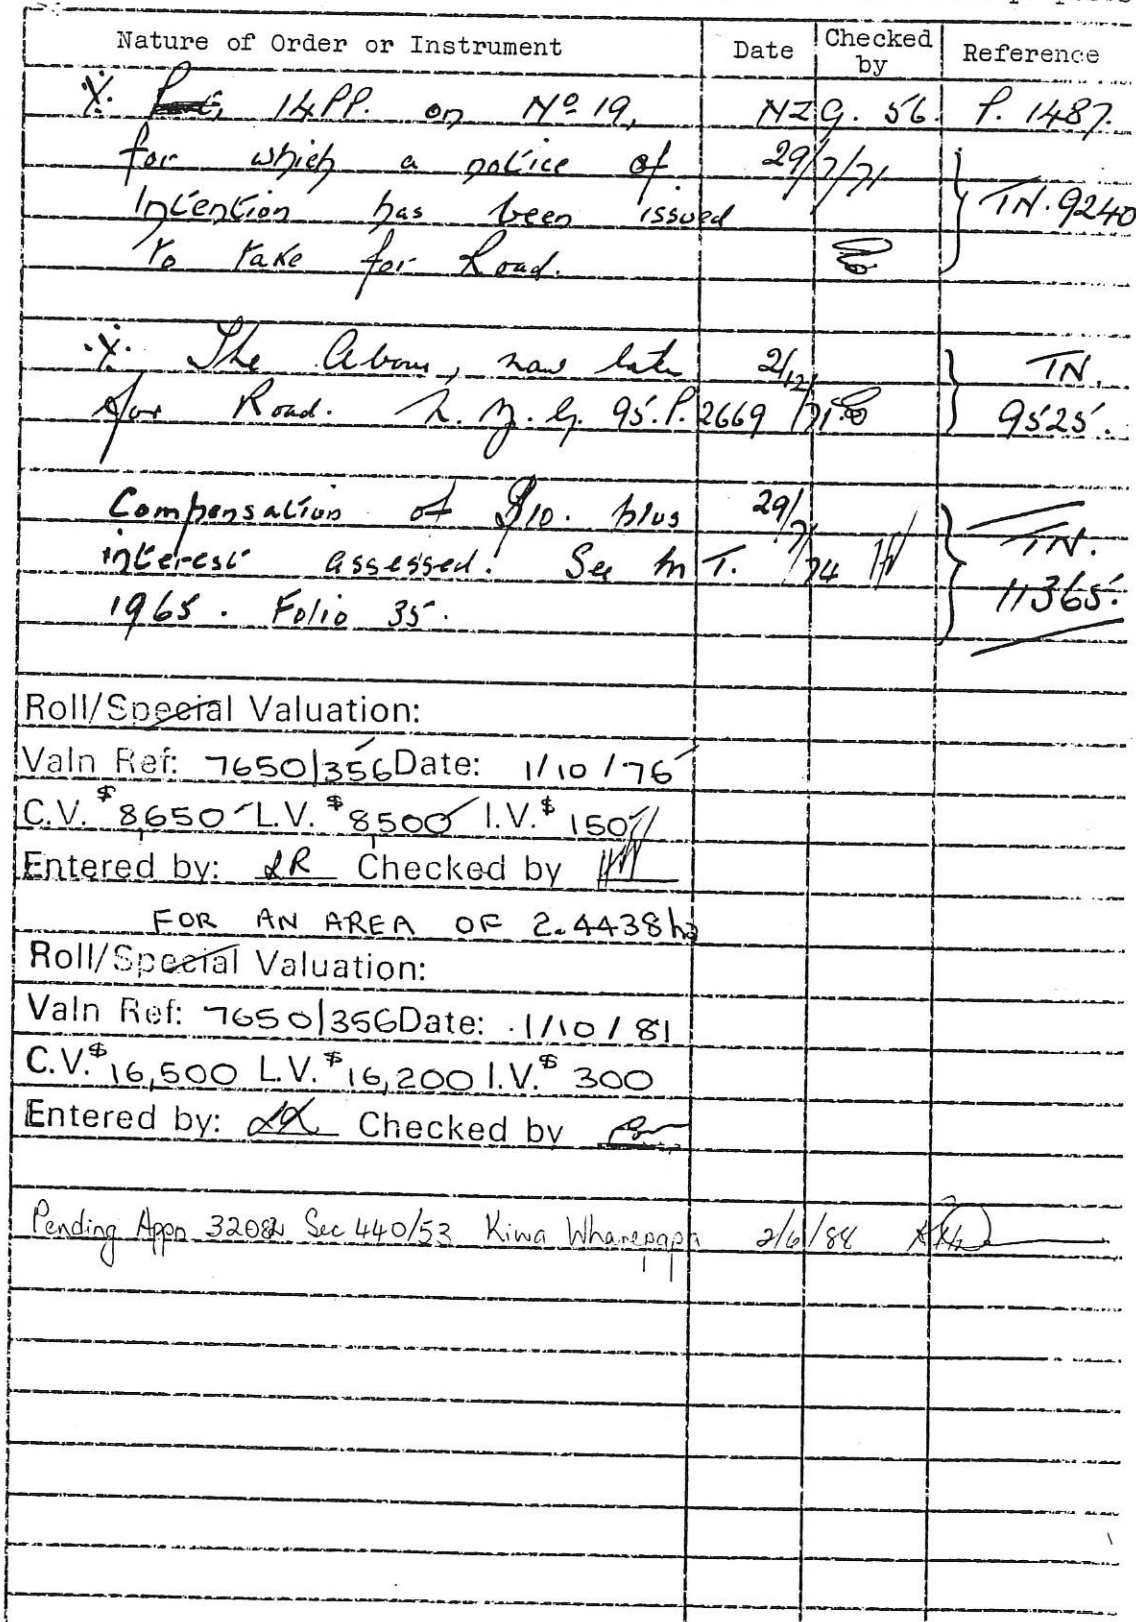 Nature of Order or Instrument Date Checked by Reference
14PP. on No 19, NZG. 56. P. 1487.
for which a notice of 29/7/71
Intention has been issued TN. 9240
to take for Road.
The Above, now 2/12/71 TN.
for Road. N. Z. G. 95. P. 2669 9525.
Compensation of $10. plus 29/7/74
interest assessed. See M T. TN.
1965. Folio 35. 11365.
Roll/Special Valuation:
Valn Ref: 7650/356 Date: 1/10/76
C.V. $8,650 L.V. $8,500 I.V. $150
Entered by: LR Checked by
FOR AN AREA OF 2.4438ha
Roll/Special Valuation:
Valn Ref: 7650/356 Date: 1/10/81
C.V. $16,500 L.V. $16,200 I.V. $300
Entered by: Checked by
Pending Appn Sec 440/53 Kiwa Wharepapa 2/6/88